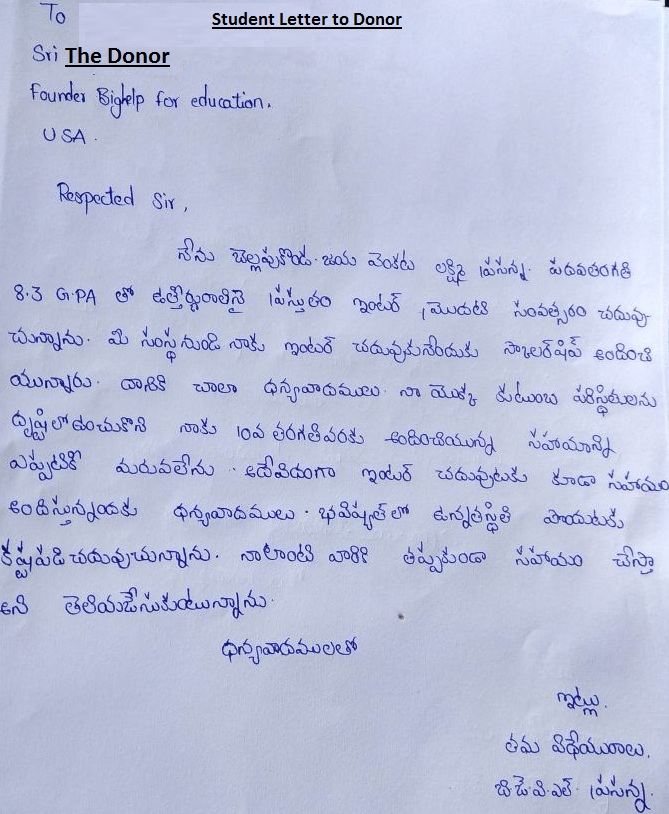 Student Letter to Donor
To
Sri The Donor
Founder Bighelp for education.
USA.
Respected Sir,
నేను చెల్లపుకొండ. జయ వెంకట లక్ష్మి ప్రసన్న. పదవతరగతి
8.3 G.PA తో ఉత్తీర్ణురాలినై ప్రస్తుతం ఇంటర్ మొదటి సంవత్సరం చదువు
చున్నాను. మీ సంస్థ నుండి నాకు ఇంటర్ చదువుకునేందుకు స్కాలర్‌షిప్ అందించి
యున్నారు. దానికి చాలా ధన్యవాదములు. నా యొక్క కుటుంబ పరిస్థితులను
దృష్టిలో ఉంచుకొని నాకు 10వ తరగతివరకు అందించియున్న సహాయాన్ని
ఎప్పటికీ మరువలేను. అదేవిదంగా ఇంటర్ చదువుటకు కూడా సహాయం
అందిస్తున్నందుకు ధన్యవాదములు. భవిష్యత్ లో ఉన్నతస్థితి పొందుటకు
కష్టపడి చదువుచున్నాను. నాలాంటి వారికి తప్పకుండా సహాయం చేస్తా
అని తెలియజేసుకుంటున్నాను.
ధన్యవాదములతో
ఇట్లు.
తమ విధేయురాలు.
బి.జె.వి.ఎల్. ప్రసన్న.